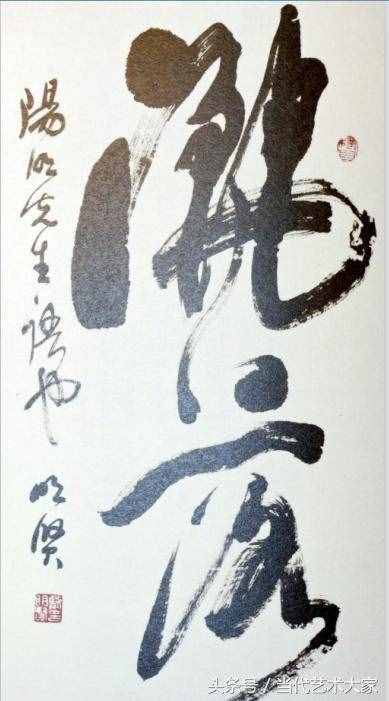 灑落
陽明先生語也 明贤
头条号 / 当代艺术大家